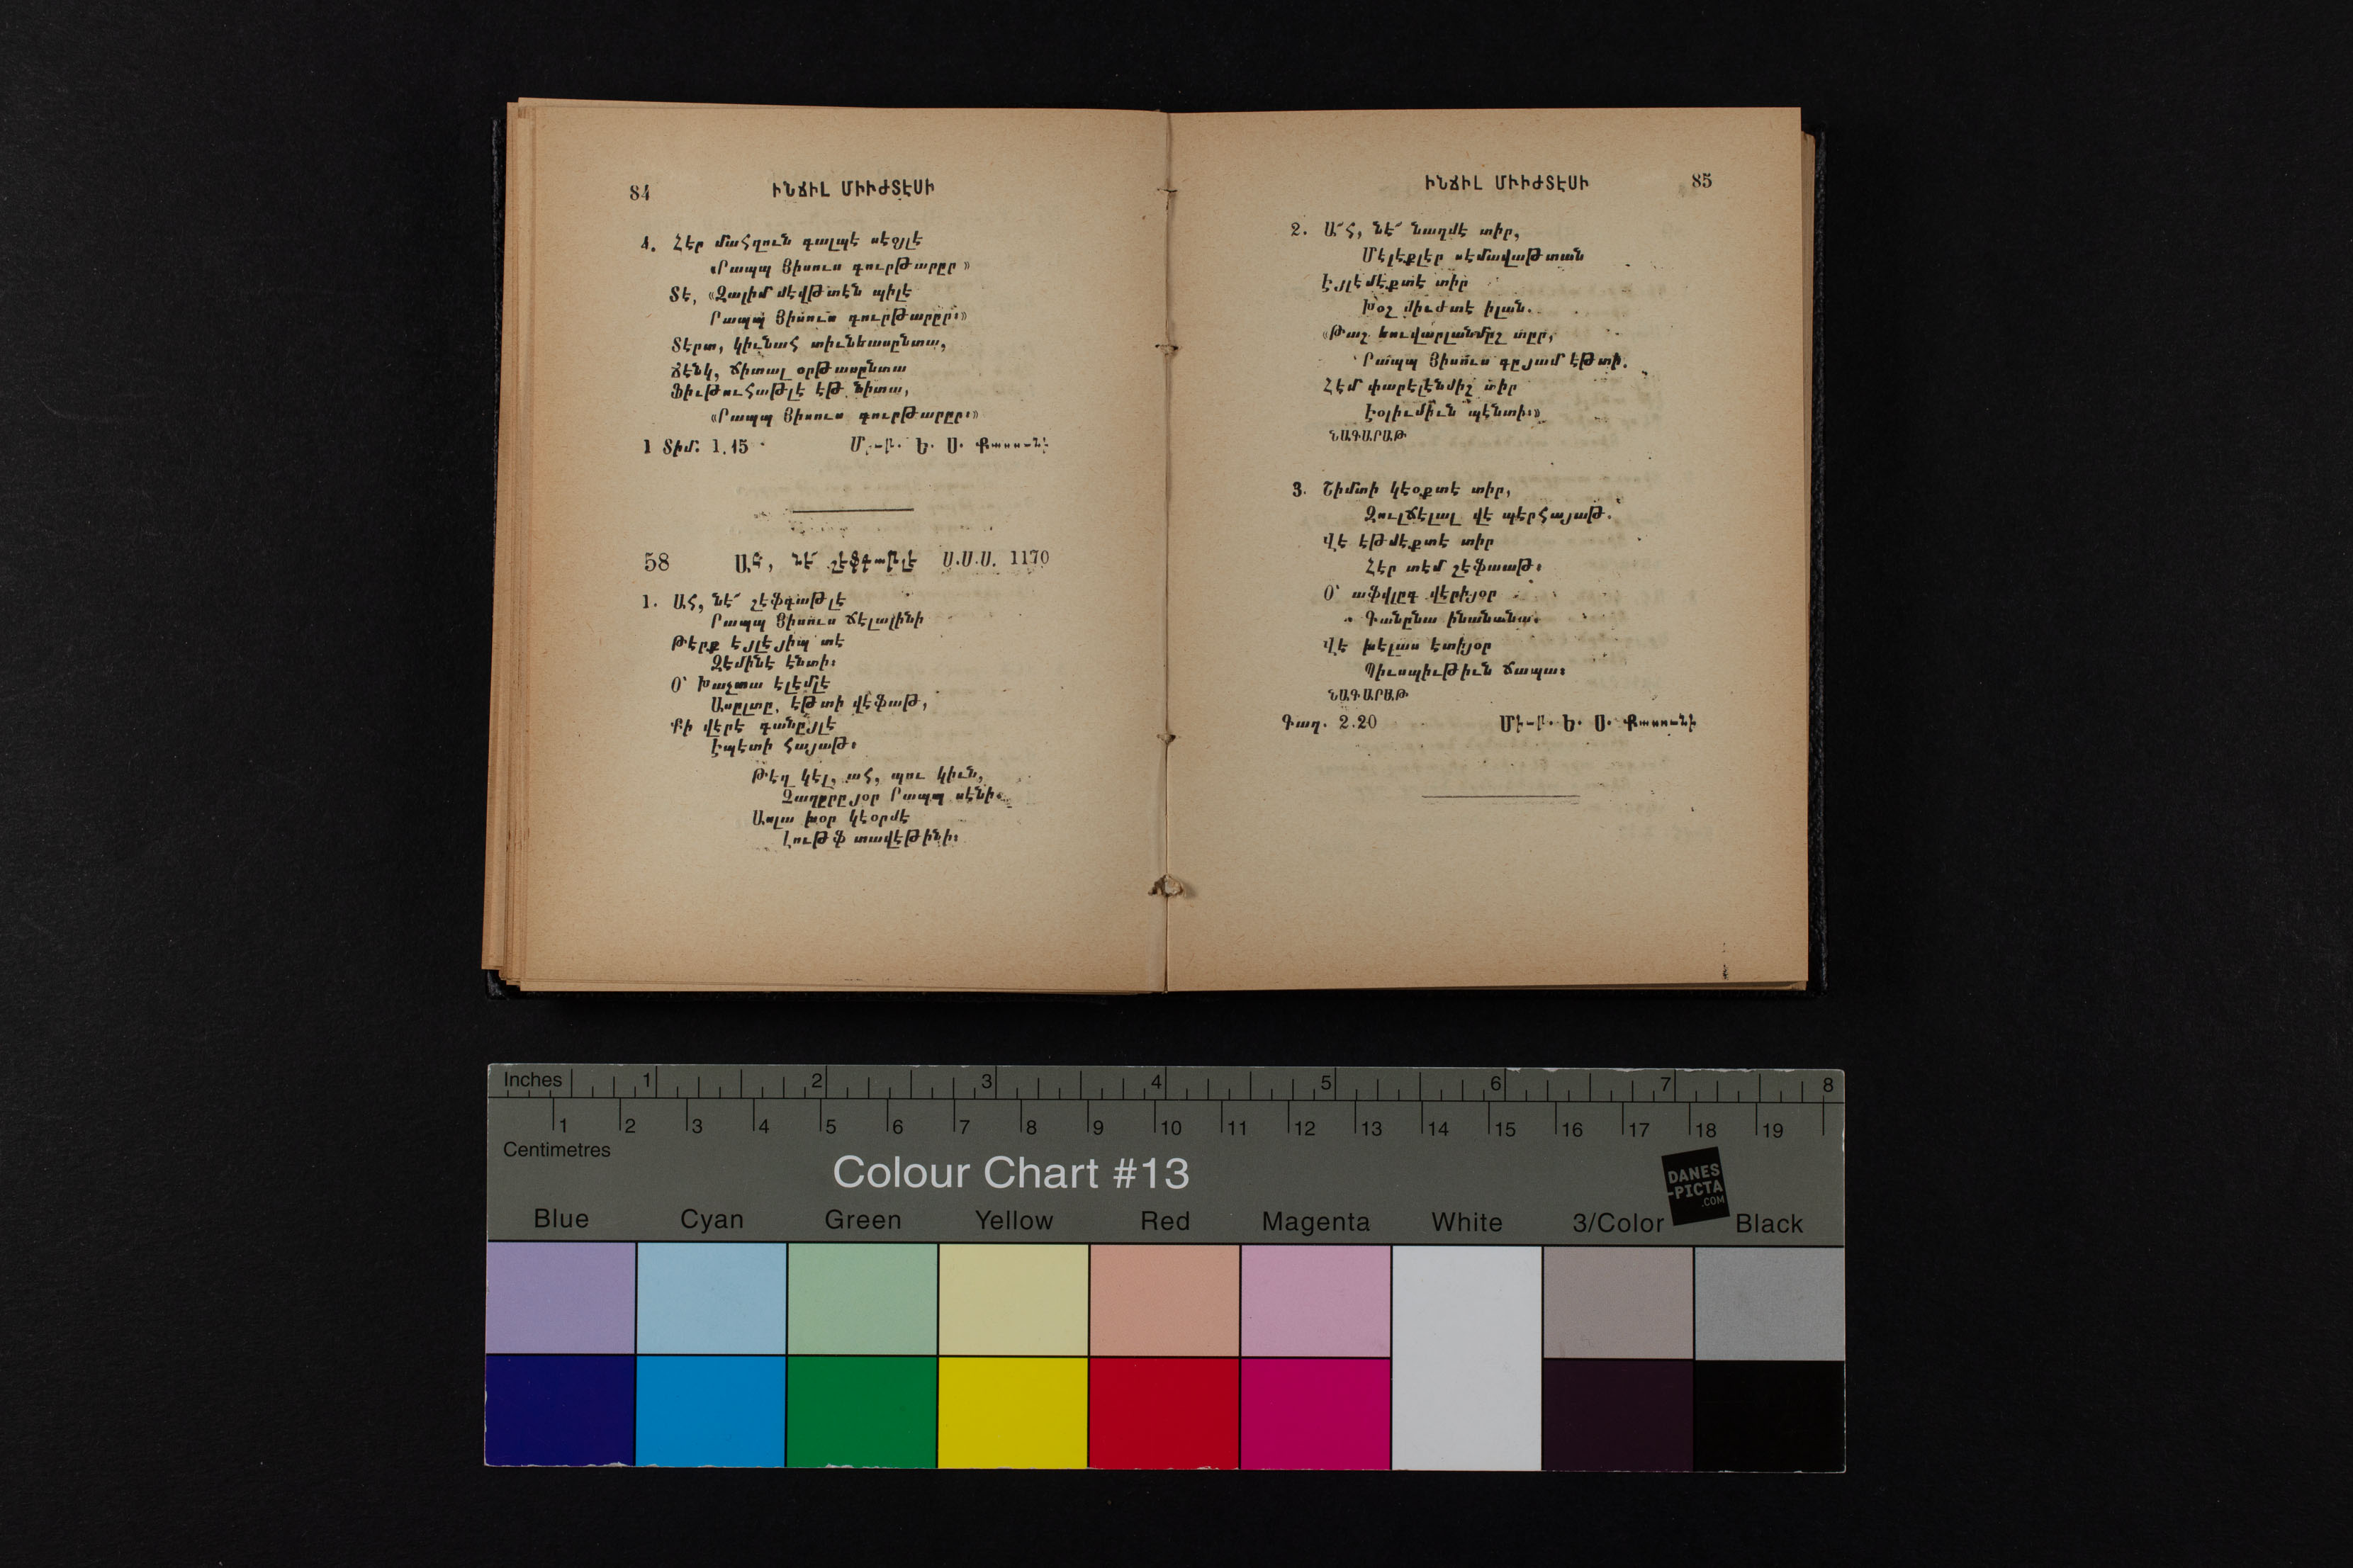 84 ԻՆՃԻԼ ՄԻՒԺՏԷՍԻ
4. Հէր մահզուն գալպէ սէօյլէ
«Րապպ Յիսուս գուրթարըր»
Տէ, «Զալիմ մէվթտէն պիլէ
Րապպ Յիսուս գուրթարըր։»
Տէրտ, կիւնահ տիւնեասընտա,
Ճէնկ, ճիտալ օրթասընտա
Ֆիւթուհաթլէ էթ նիտա,
«Րապպ Յիսուս գուրթարըր։»
1 Տիմ. 1.15
58 ԱՀ, նէ՜ շէֆգաթլէ Ս.Ս.Ս. 1170
1. ԱՀ, նէ՜ շէֆգաթլէ
Րապպ Յիսուս ճէլալինի
Թէրք էյլէյիպ տէ
Զէմինէ էնտի։
Օ՝ Խաչտա էլէմլէ
Ասըլտը, էթտի վէֆաթ,
Քի վէրէ գանըյլէ
Էպէտի հայաթ։
Թէզ կէլ, ահ, պու կիւն,
Չաղըրըյօր Րապպ սէնի.
Ասլա խօր կէօրմէ
Լութֆ տավէթինի։
ԻՆՃԻԼ ՄԻՒԺՏԷՍԻ 85
2. Ա՜Հ, նէ՜ նաղմէ տիր,
Մէլէքլէր սէմավաթտան
Էյլէմէքտէ տիր
Խօշ միւժտէ իլան.
«Թաշ եուվարլանմըշ տըր,
Րապպ Յիսուս գըյամ էթտի.
Հէմ փարէլէնմիշ տիր
Էօլիւմիւն պէնտի։»
ՆԱԳԱՐԱԹ
3. Շիմտի կէօքտէ տիր,
Զուլճէլալ վէ պէրհայաթ.
Վէ էթմէքտէ տիր
Հէր տէմ շէֆաաթ։
Օ՝ աֆվլըգ վէրիյօր
Գանընա ինանանա.
Վէ խէլաս էտիյօր
Պիւսպիւթիւն ճապա։
ՆԱԳԱՐԱԹ
Գաղ. 2.20
Inches 1 2 3 4 5 6 7 8
1 2 3 4 5 6 7 8 9 10 11 12 13 14 15 16 17 18 19
Centimetres
Colour Chart #13
DANES
-PICTA
.COM
Blue Cyan Green Yellow Red Magenta White 3/Color Black